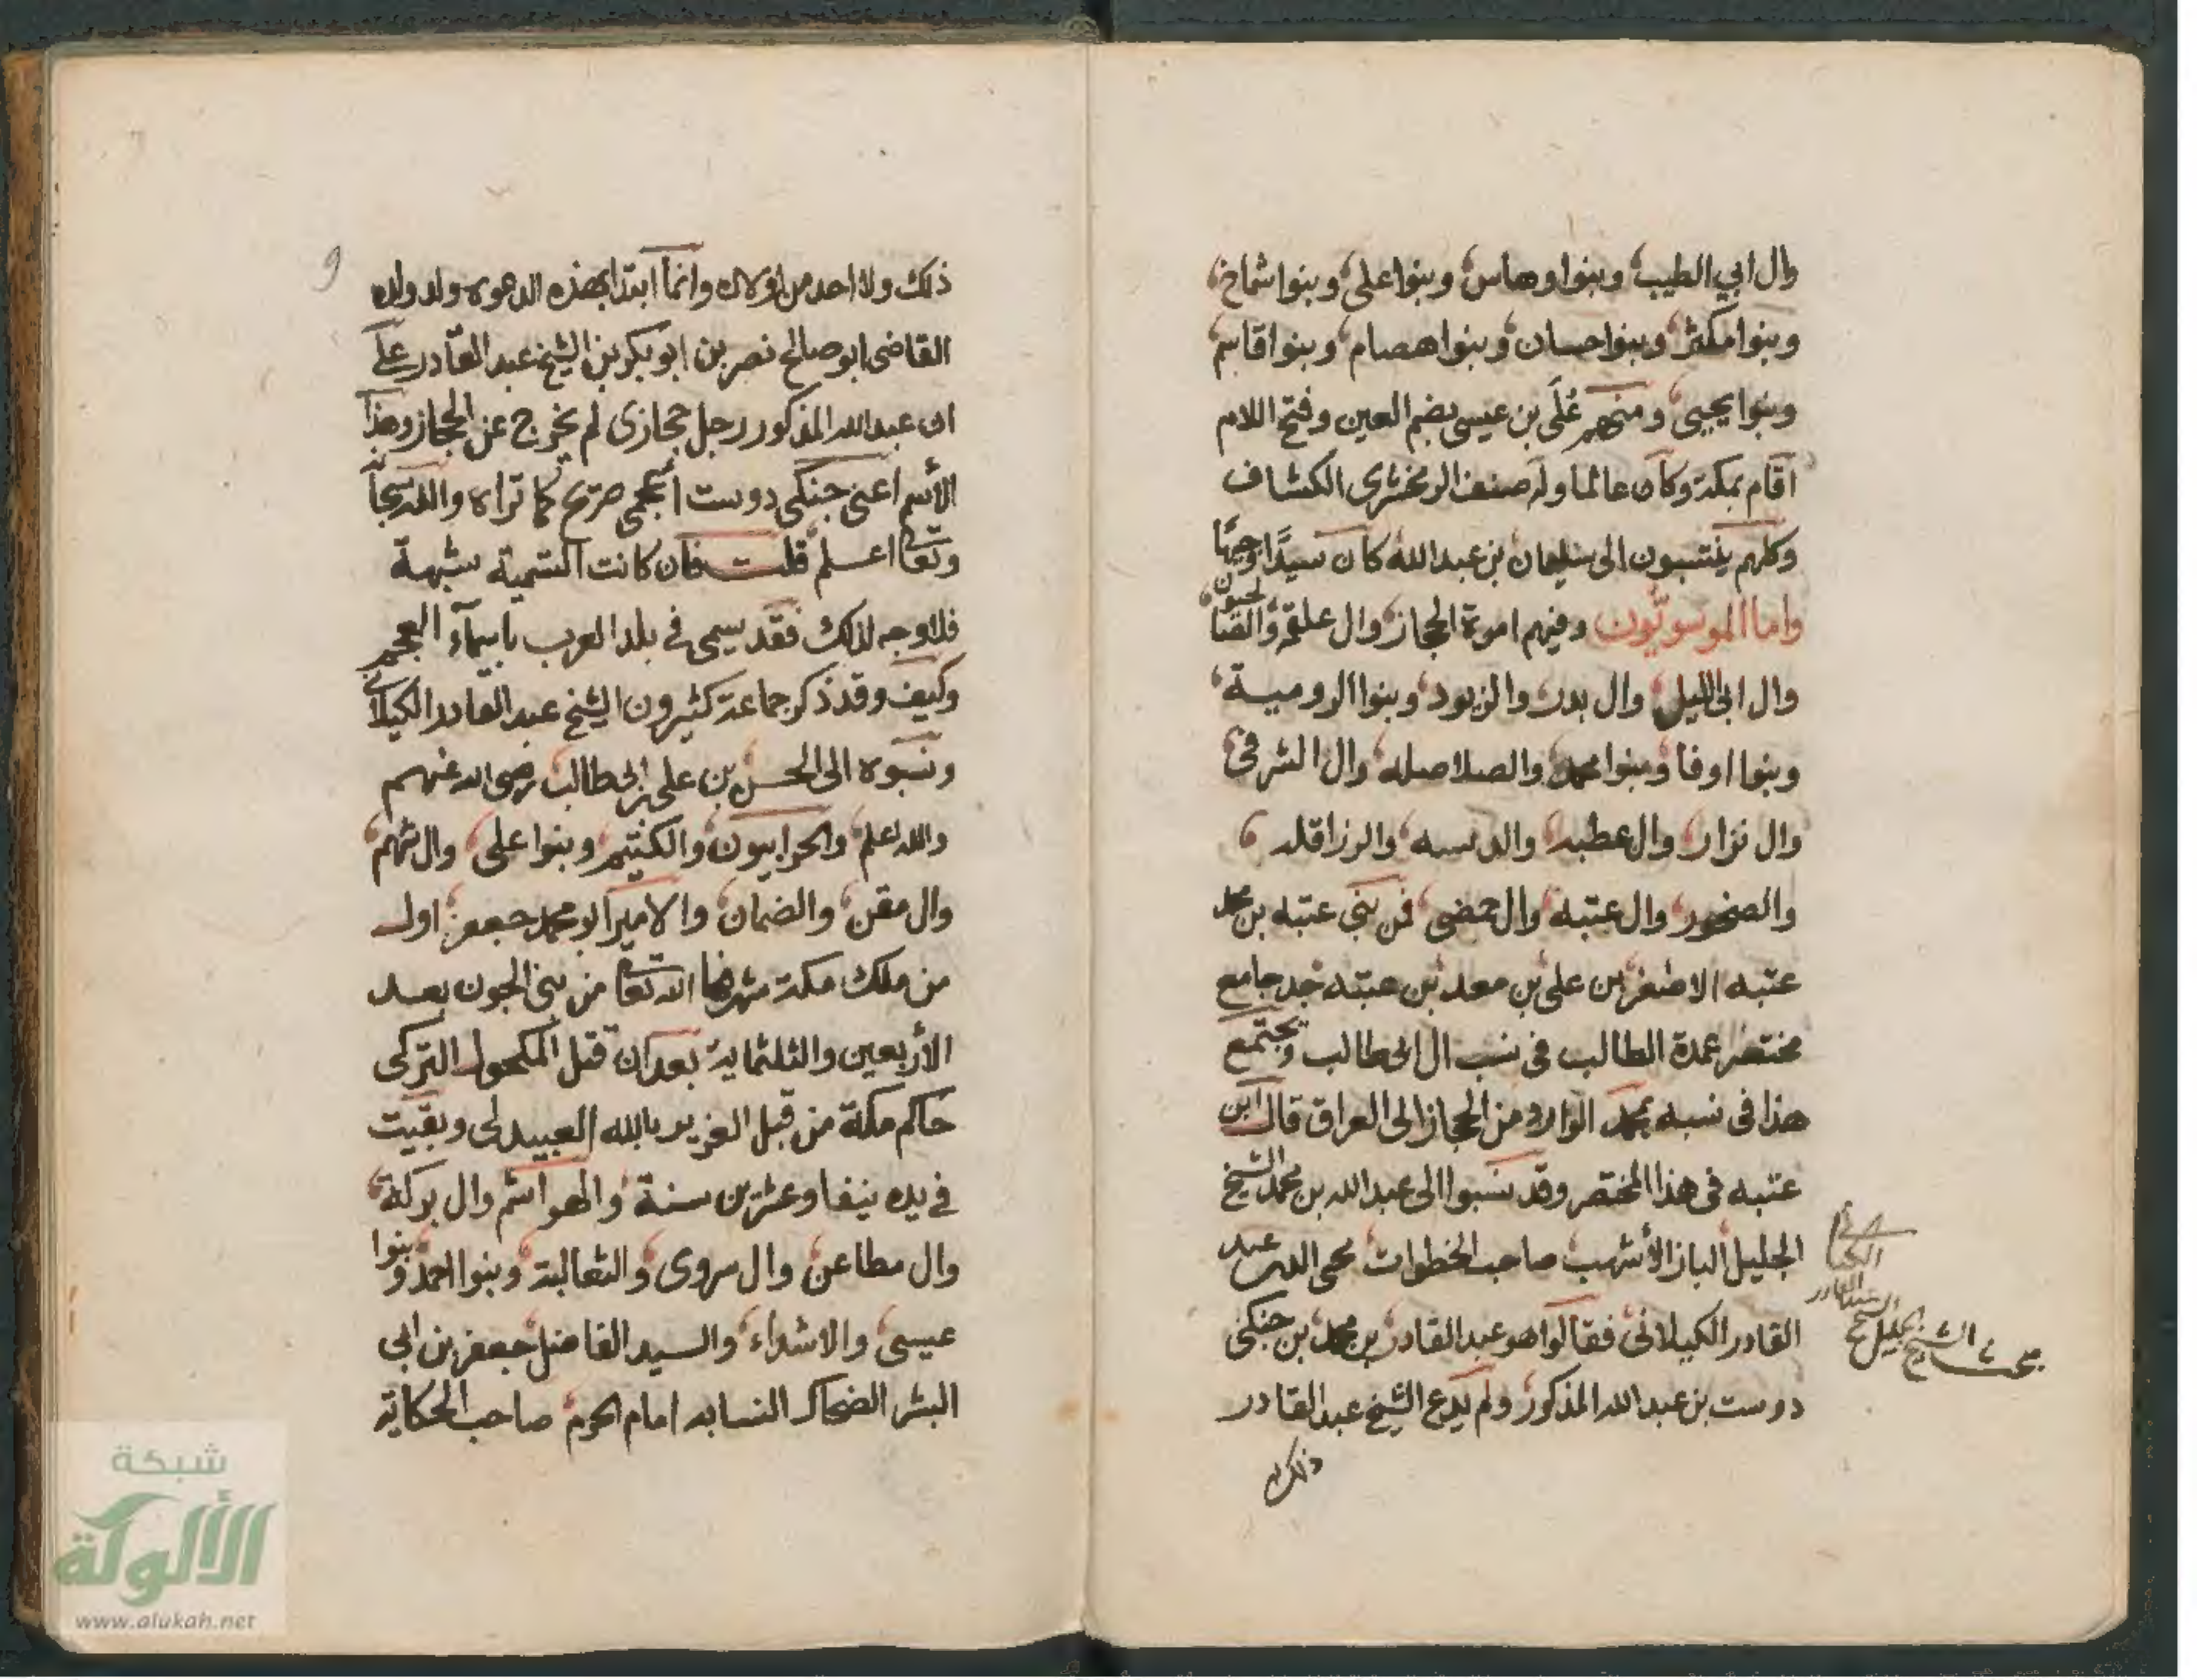 وال ابي الطيب وبنوا وهاس وبنوا على وبنوا شماخ
وبنوا مكثر وبنوا حسان وبنوا هصام وبنوا قاسم
وبنوا يحيى ومنهم عُلَى بن عيسى بضم العين وفتح اللام
اقام بمكة وكان عالما وله صنف الزمخشرى الكشاف
وكلهم ينتسبون الى سليمان بن عبد الله كان سيدًا وجيهًا
واما الموسويون وفيهم امرة الحجاز وال علقمة
وال ابى الليل وال بدر والزيود وبنوا الرومية
وبنوا اوفا وبنوا محمد والصلاصله وال الشرقى
وال نزار وال عطيه والرزاقله
والصخور وال عتبه فمن بنى عتبه بن محمد
عتبه الاصغر بن على بن معد بن عتبه جد جامع
مختصر عمدة الطالب فى نسب ال ابى طالب ويجتمع
هذا فى نسبه بمحمد الوارد من الحجاز الى العراق قال ابن
عتبه فى هذا المختصر وقد نسبوا الى عبد الله بن محمد الشيخ
الجليل الباز الأشهب صاحب الخطوات محى الدين عبد
القادر الكيلانى فقالوا هو عبد القادر بن محمد بن جنكى
دوست بن عبد الله المذكور ولم يدع الشيخ عبد القادر
ذلك
الشيخ الجليل
٩
ذلك ولا احد من اولاده وانما ابتدا بهذه الدعوة ولد ولده
القاضى ابو صالح نصر بن ابو بكر بن الشيخ عبد القادر على
ان عبد الله المذكور رجل حجازى لم يخرج عن الحجاز وهذا
الأسم اعنى جنكى دوست أعجمى صريح كما تراه والله سبحا
وتعا اعلم قلت فان كانت التسمية شبهة
فلا وجه لذلك فقد يسمى فى بلد العرب باسماء العجم
وكيف وقد ذكر جماعة كثيرون الشيخ عبد القادر الكيلانى
ونسبوه الى الحسن بن على بن ابى طالب رضى الله عنهم
والله اعلم والحرابيون وبنوا على
وال مقن والضمان والامير ابو محمد جعفر اول
من ملك مكة شرفها الله تعا من بنى الجون بعد
الأربعين والثلثماية بعد ان قتل المكحول التركى
حاكم مكة من قبل العزيز بالله العبيدلى وبقيت
فى يده نيفا وعشرين سنة والهواشم وال بركة
وال مطاعن وال سروى والثعالبة وبنوا احمد وبنوا
عيسى والاشداء والسيد الفاضل جعفر بن ابى
البشر الضحاك النسابه امام الحرم صاحب الحكاية
شبكة
الألوكة
www.alukah.net